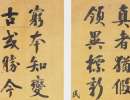 真者猶
領異標新
窮本知變
古或勝今